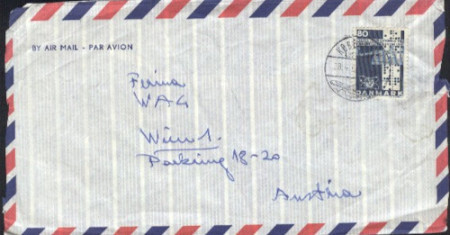 BY AIR MAIL - PAR AVION
80
DANMARK
Firma
WAG
Wien 1.
Parkring 18-20
Austria